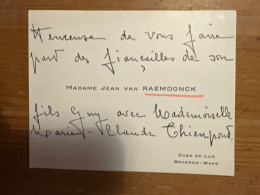 Heureuse de vous faire
part des fiançailles de son
MADAME JEAN VAN RAEMDONCK
fils Guy avec Mademoiselle
Marie-Claude Thienpont.
CASA DE LUZ
BEVEREN-WAES